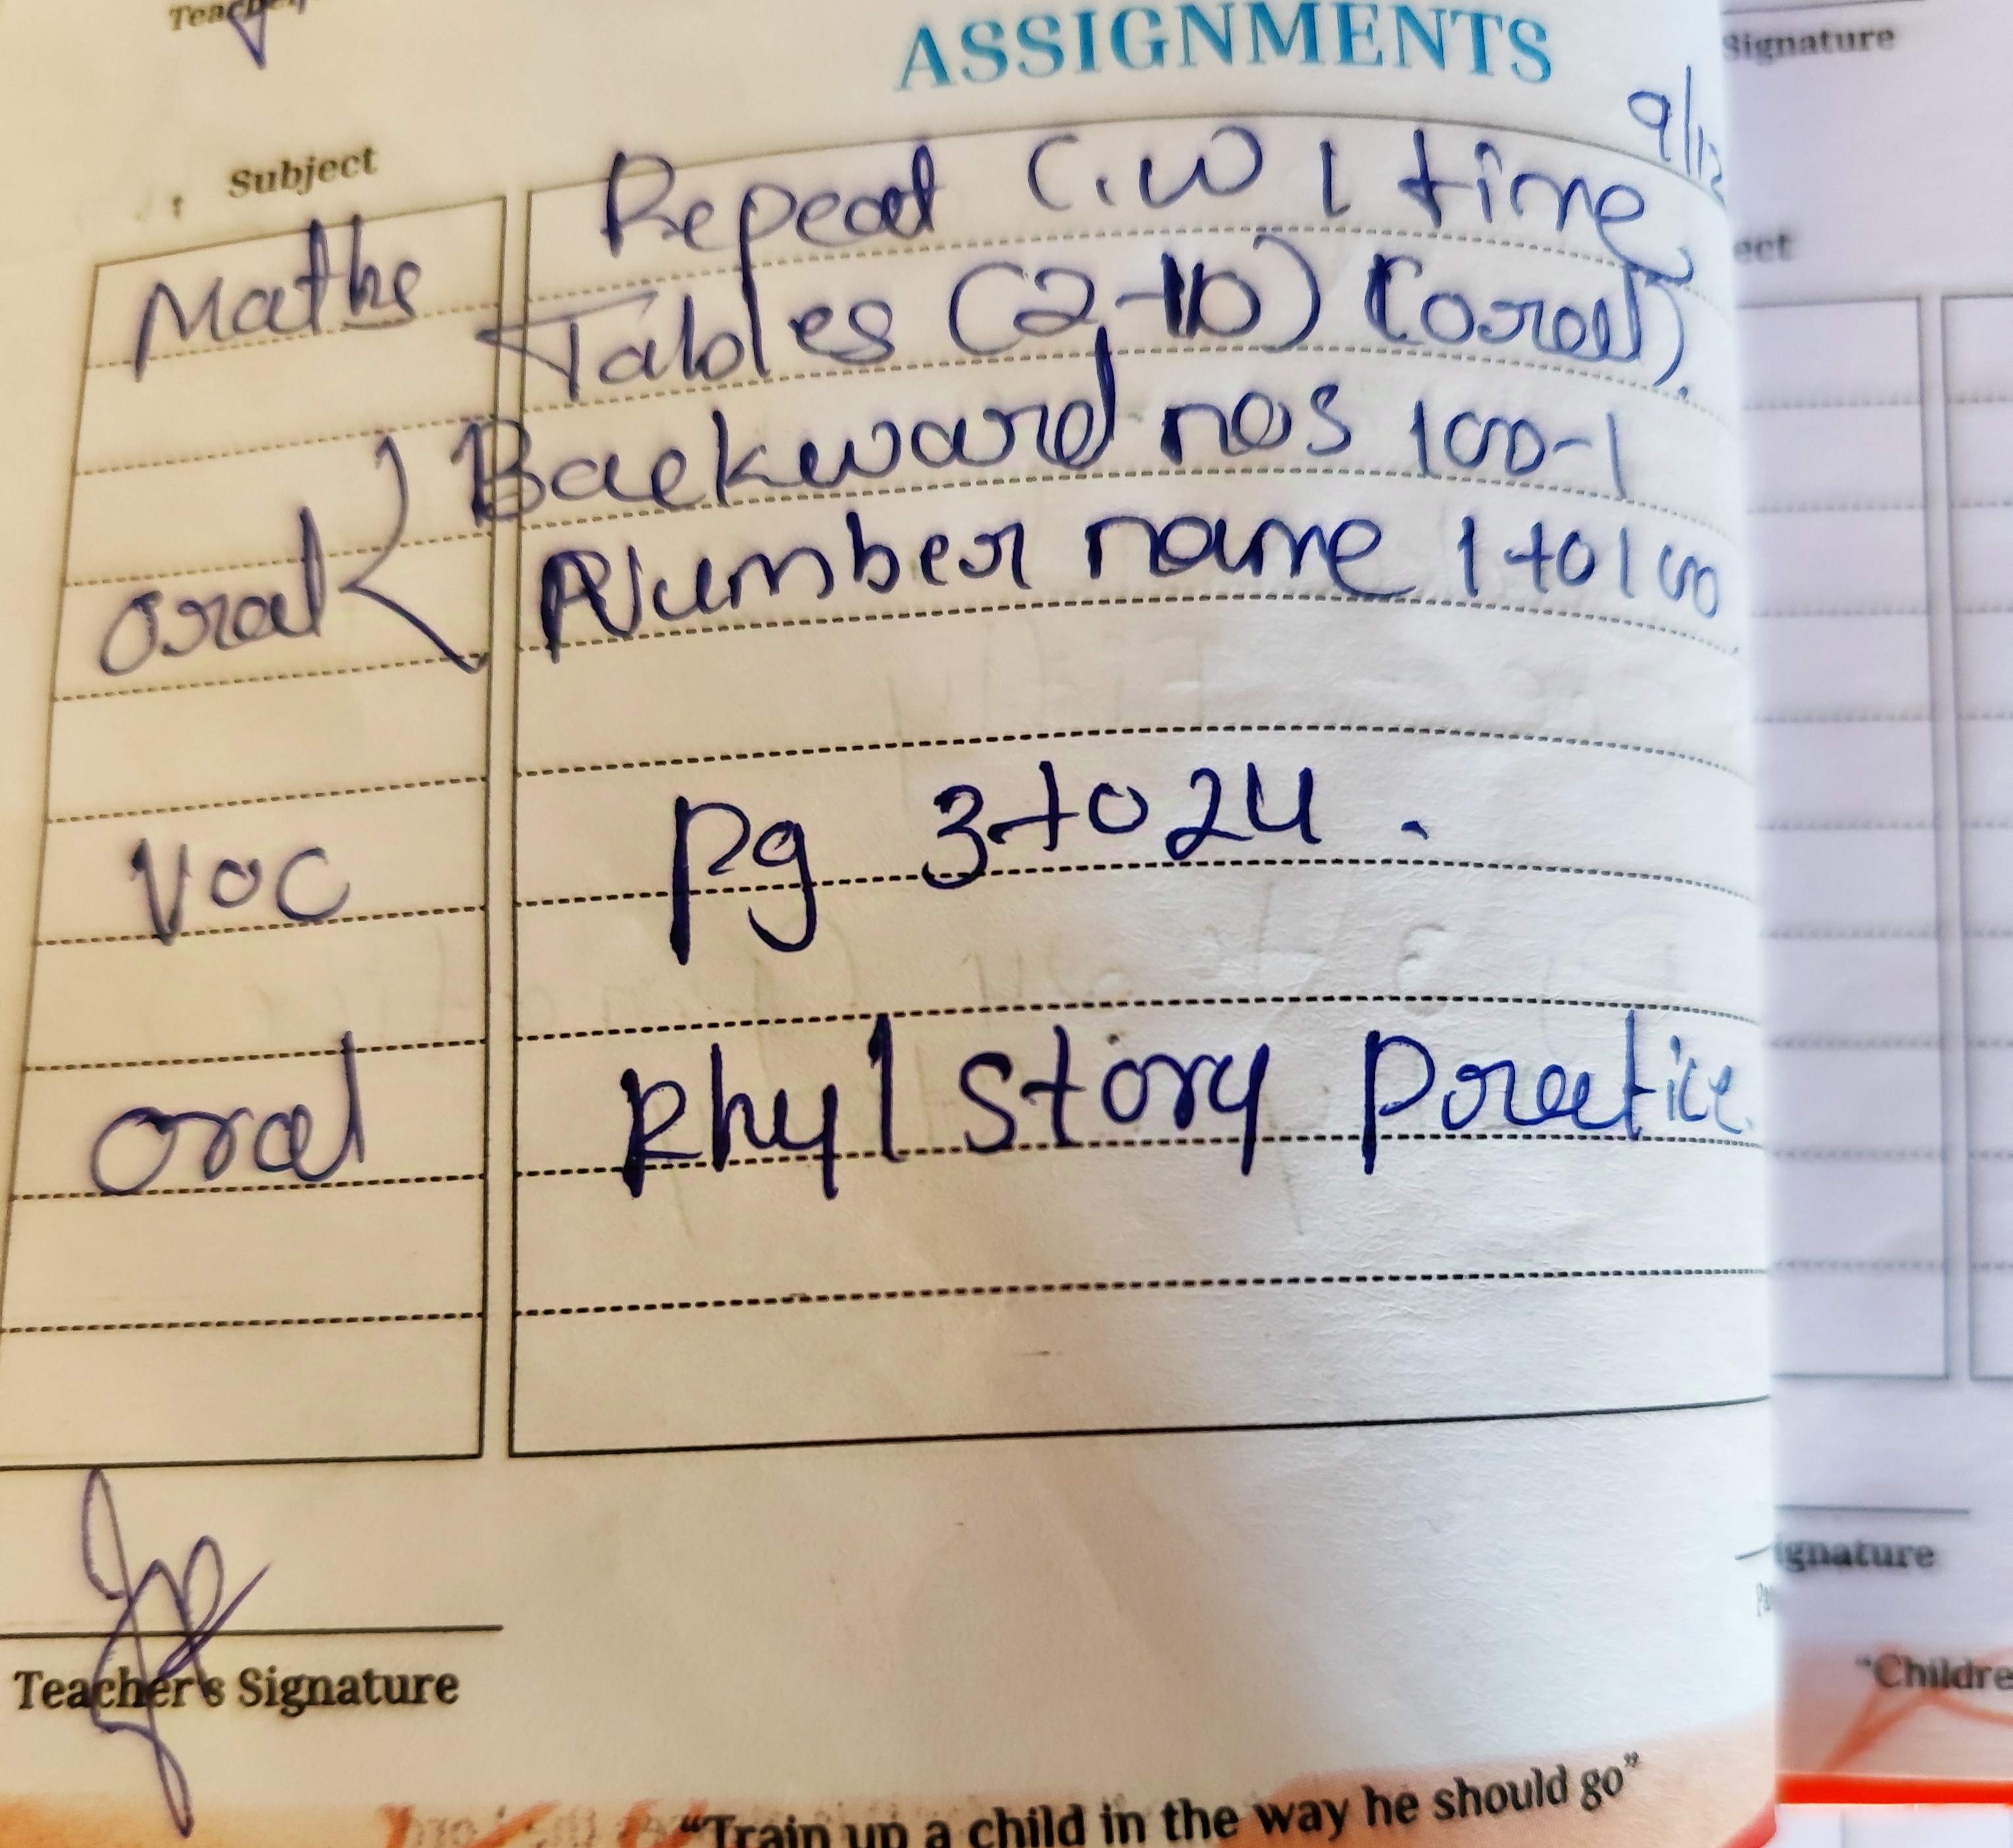 ASSIGNMENTS
Signature
9/12
Subject
Repeat C.W 1 time,
Maths
Tables (2-10) (oral).
Backward nos 100-1
oral
Number name 1 to 100
Voc
Pg 3 to 24.
oral
Rhy/Story Practice
Teacher's Signature
"Train up a child in the way he should go"
"Childre